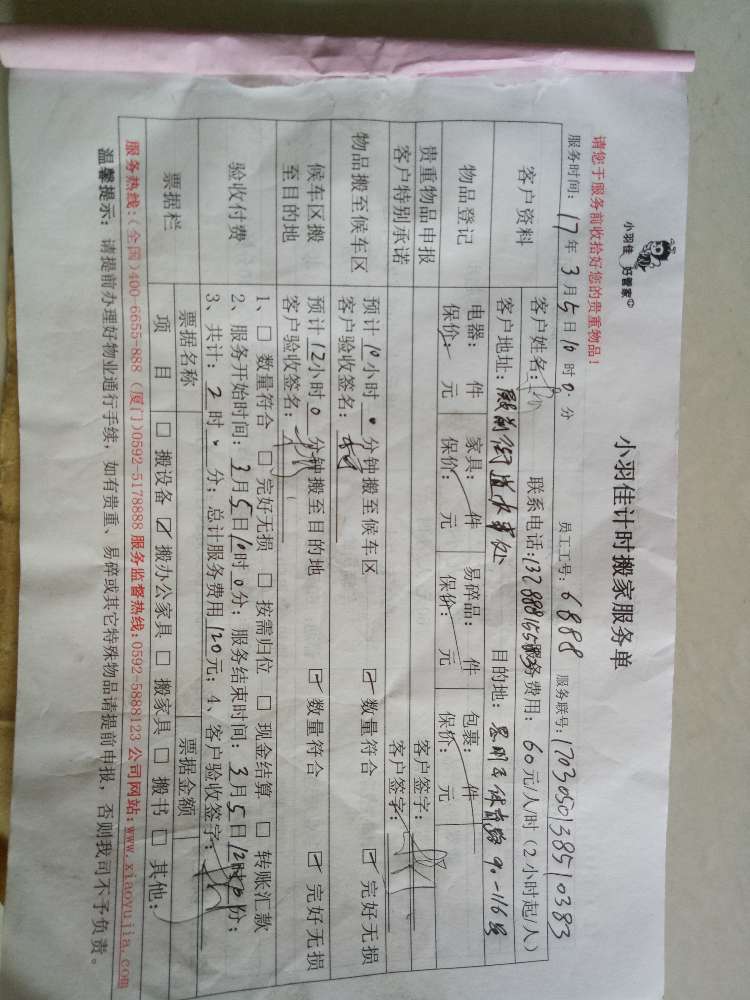 小羽佳 好管家
小羽佳计时搬家服务单
请您于服务前收拾好您的贵重物品!
员工工号: 6888 服务联号: 1703050138510383
服务时间: 17年3月5日10时0分
客户资料
客户姓名: 联系电话: 服务费用: 60元/人/时(2小时起/人)
客户地址: 目的地: 思明区体育路90-116号
物品登记
电器: 件 家具: 件 易碎品: 件 包裹: 件
保价: 元 保价: 元 保价: 元 保价: 元
贵重物品申报 客户签字:
客户特别承诺 客户签字:
物品搬至候车区
预计10小时0分钟搬至候车区 ☑ 数量符合 ☑ 完好无损
客户验收签名:
候车区搬至目的地
预计12小时0分钟搬至目的地 ☑ 数量符合 ☑ 完好无损
客户验收签名:
验收付费
1、□ 数量符合 □ 完好无损 □ 按需归位 □ 现金结算 □ 转账汇款
2、服务开始时间: 3月5日10时0分; 服务结束时间: 3月5日12时0分;
3、共计: 2时 分; 总计服务费用120元; 4、客户验收签字:
票据栏
票据名称 票据金额
项目 □ 搬设备 ☑ 搬办公家具 □ 搬家具 □ 搬书 □ 其他:
服务热线:(全国)400-6655-888 (厦门)0592-5178888 服务监督热线:0592-5888123 公司网站:www.xiaoyujia.com
温馨提示: 请提前办理好物业通行手续, 如有贵重、易碎或其它特殊物品请提前申报, 否则我司不予负责。